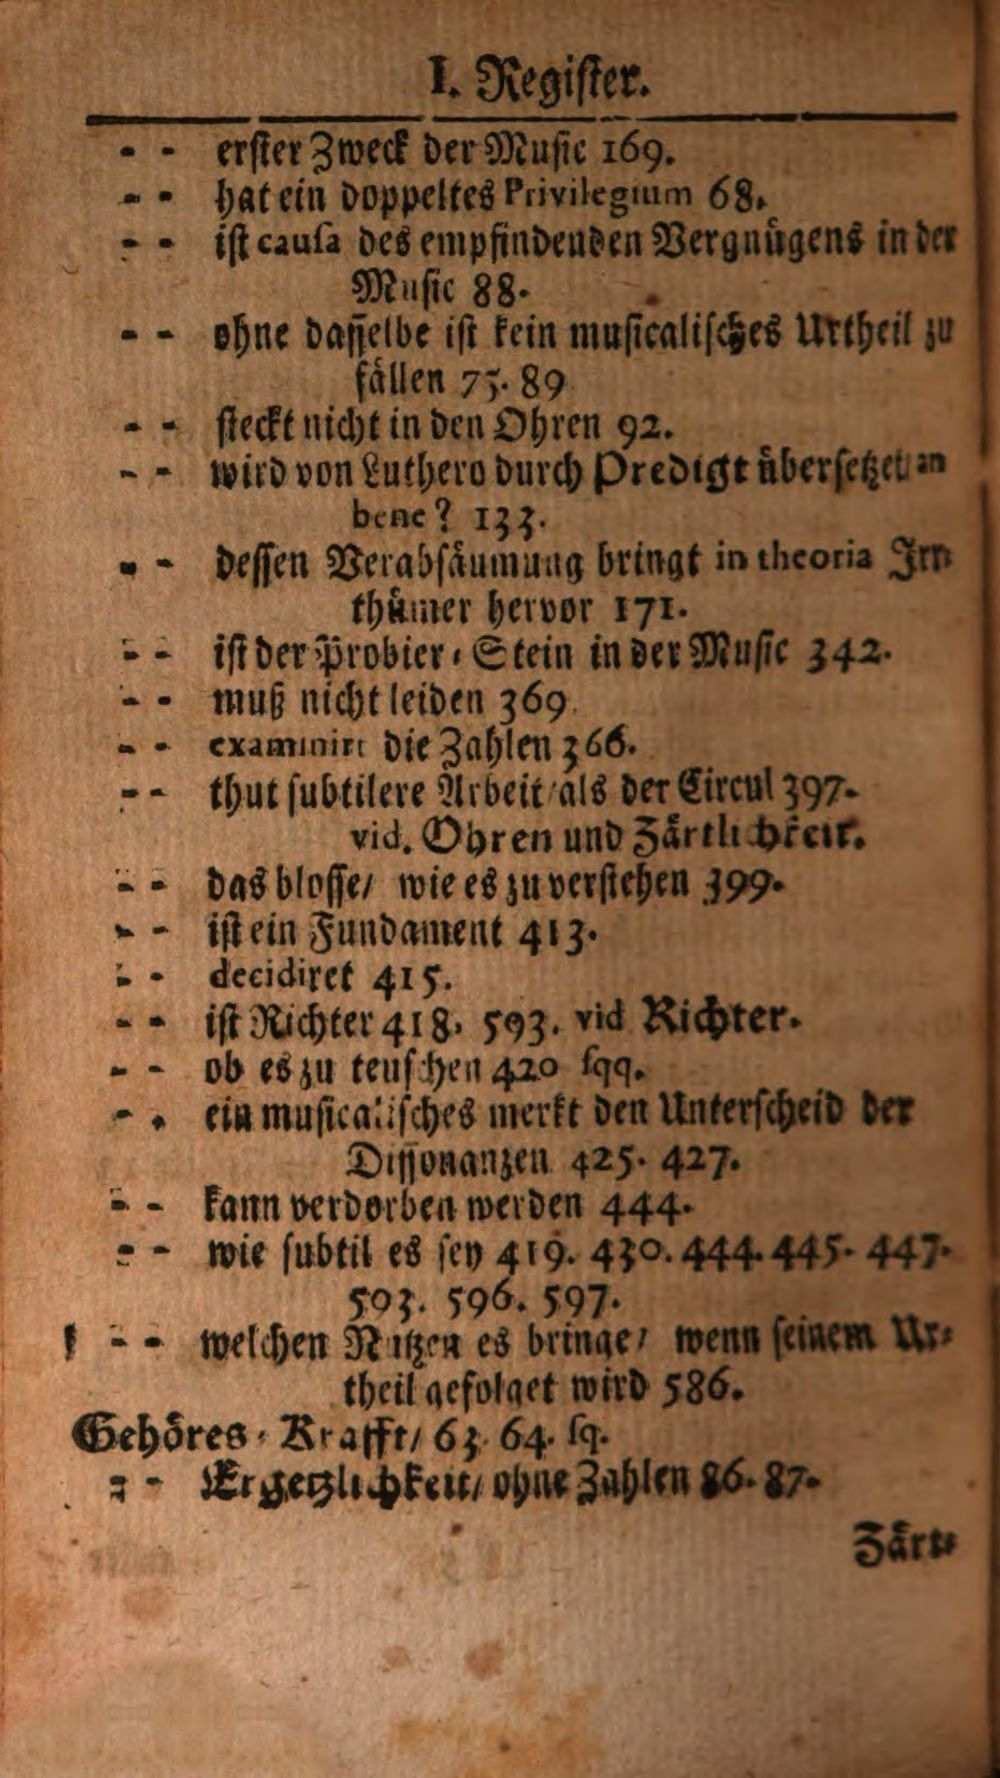 I. Regiſter.
- - erſter Zweck der Muſic 169.
- - hat ein doppeltes Privilegium 68.
- - iſt cauſa des empfindenden Vergnuͤgens in der
Muſic 88.
- - ohne daſſelbe iſt kein muſicaliſches Urtheil zu
faͤllen 75. 89
- - ſteckt nicht in den Ohren 92.
- - wird von Luthero durch Predigt uͤberſetzet an
bene? 133.
- - deſſen Verabſaͤumung bringt in theoria Irr-
thuͤmer hervor 171.
- - iſt der Probier-Stein in der Muſic 342.
- - muß nicht leiden 369.
- - examinirt die Zahlen 366.
- - thut ſubtilere Arbeit/ als der Circul 397.
vid. Ohren und Zaͤrtlichkeit.
- - das bloſſe/ wie es zu verſtehen 399.
- - iſt ein Fundament 413.
- - decidiret 415.
- - iſt Richter 418. 593. vid Richter.
- - ob es zu teuſchen 420 ſqq.
- - ein muſicaliſches merkt den Unterſcheid der
Diſſonanzen 425. 427.
- - kann verdorben werden 444.
- - wie ſubtil es ſey 419. 430. 444. 445. 447.
593. 596. 597.
- - welchen Nutzen es bringe/ wenn ſeinem Ur-
theil gefolget wird 586.
Gehoͤres-Krafft/ 63. 64. ſq.
- - Ergetzlichkeit/ ohne Zahlen 86. 87.
Zaͤrt-